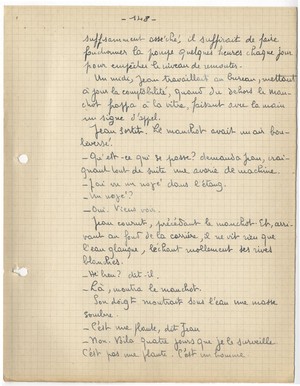 - 148 -
suffisamment asséché, il suffirait de faire
fonctionner la pompe quelques heures chaque jour
pour empêcher le niveau de remonter.
Un midi, Jean travaillait au bureau, mettant
à jour la comptabilité, quand du dehors le man-
chot frappa à la vitre, faisant avec la main
un signe d'appel.
Jean sortit. Le manchot avait un air bou-
leversé.
- Qu'est-ce qui se passe? demanda Jean, crai-
gnant tout de suite une avarie de machine.
- J'ai vu un noyé dans l'étang.
- Un noyé?
- Oui. Viens voir.
Jean courut, précédant le manchot. Et, arri-
vant au fond de la carrière, il ne vit rien que
l'eau glauque, léchant mollement ses rives
blanches.
- Hé bien? dit-il.
- Là, montra le manchot.
Son doigt montrait sous l'eau une masse
sombre.
- C'est une plante, dit Jean
- Non. Voilà quatre jours que je le surveille.
C'est pas une plante. C'est un homme.